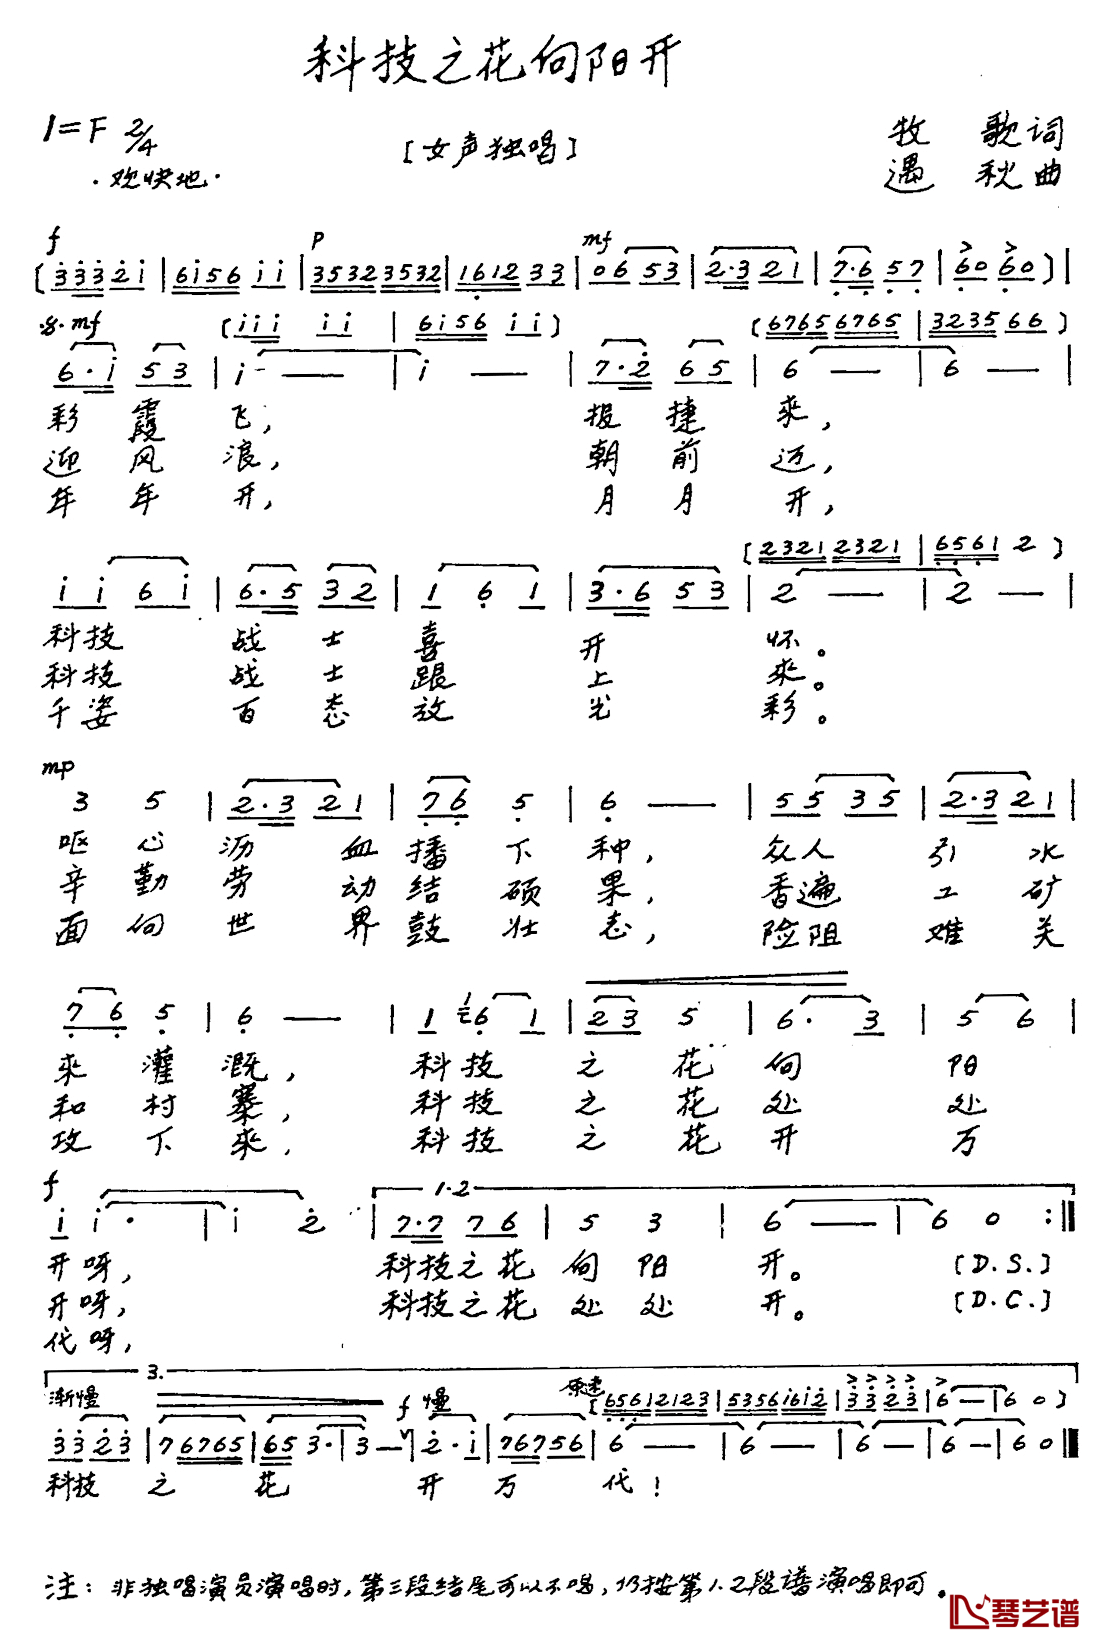 科技之花向阳开
1=F 2/4
[女声独唱]
牧 歌词
·欢快地·
遇 秋曲
f p mf
(3̇3̇3̇ 2̇1̇ | 61̇56 1̇1̇ | 3532 3532 | 16̣12 33 | 06 53 | 2·3 21 | 7̣·6̣ 5̣7̣ | 6̣0 6̣0) |
·𝄋· mf (1̇1̇1̇ 1̇1̇ | 61̇56 1̇1̇) (6765 6765 | 3235 66)
6·1̇ 53 | 1̇ — | 1̇ — | 7·2̇ 65 | 6 — | 6 — |
彩霞飞, 报捷来,
迎风浪, 朝前迈,
年年开, 月月开,
(2321 2321 | 6̣5̣6̣1 2)
1̇1̇ 61̇ | 6·5 32 | 1 6̣ 1 | 3·6 53 | 2 — | 2 — |
科技战士喜开怀。
科技战士跟上来。
千姿百态放光彩。
mp
3 5 | 2·3 21 | 7̣6̣ 5̣ | 6̣ — | 55 35 | 2·3 21 |
呕心沥血播下种, 众人引水
辛勤劳动结硕果, 香遍工矿
面向世界鼓壮志, 险阻难关
7̣6̣ 5̣ | 6̣ — | 1 6̣ 1 | 23 5 | 6· 3 | 5 6 |
来灌溉, 科技之花向阳
和村寨, 科技之花处处
攻下来, 科技之花开万
f 1·2
1̇ 1̇· | 1̇ 2̇ | 7·7 76 | 5 3 | 6 — | 6 0 :‖
开呀, 科技之花向阳开。 [D.S.]
开呀, 科技之花处处开。 [D.C.]
代呀,
3.
渐慢 f 慢 原速 (6̣5̣6̣1 2123 | 5356 1̇61̇2̇ | 3̇3̇ 2̇3̇ | 6 — | 6 0)
3̇3̇ 2̇3̇ | 76765 | 65 3· | 3 — | 2̇· 1̇ | 76756 | 6 — | 6 — | 6 — | 6 — | 6 0 ‖
科技之花开万代!
注: 非独唱演员演唱时, 第三段结尾可以不唱, 仍按第1.2段谱演唱即可。
琴艺谱